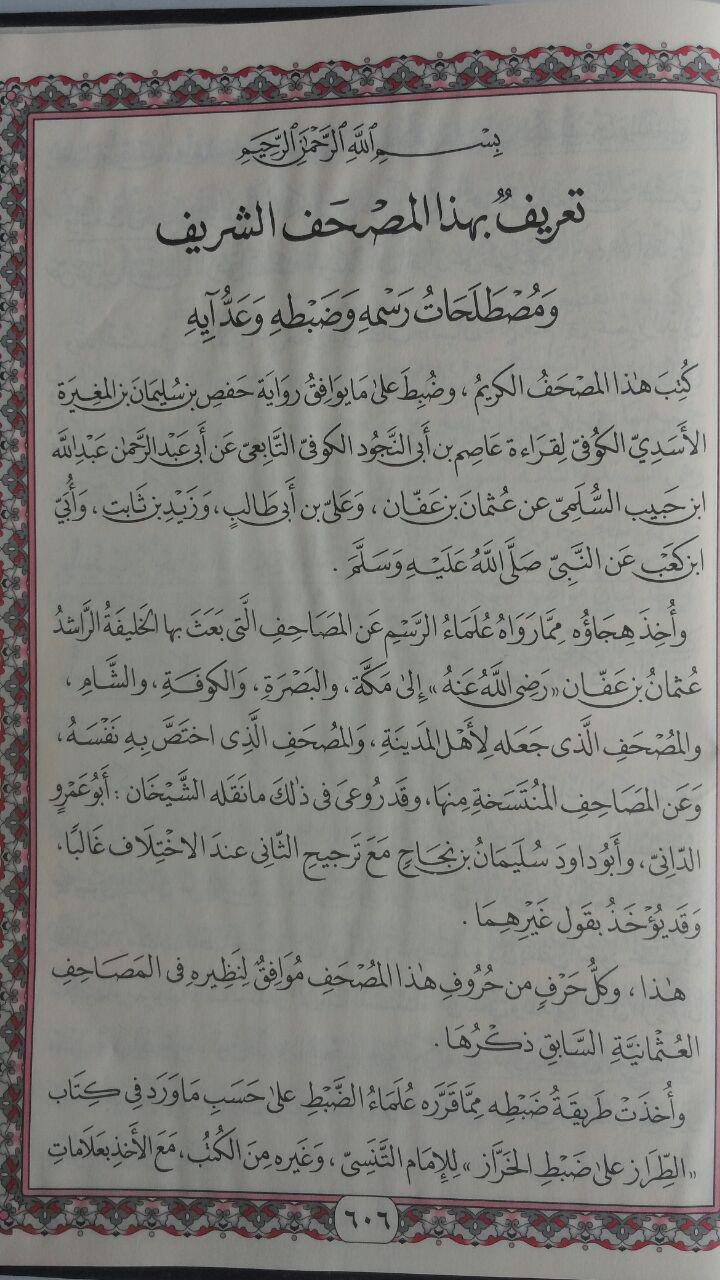 بِسْمِ ٱللَّهِ ٱلرَّحْمَٰنِ ٱلرَّحِيمِ
تعريفٌ بهذا المصْحَف الشريف
وَمُصْطَلَحَاتُ رَسْمِهِ وَضَبْطِهِ وَعَدُّ آيِهِ
كُتِبَ هٰذا المصْحَفُ الكريمُ ، وضُبِطَ علىٰ مَا يوَافِقُ روَايَةَ حَفصِ بن سُليمَانَ بن المغيرَةِ
الأسَدِيِّ الكُوفىِّ لِقرَاءة عَاصِم بن أبى النَّجُود الكوفىِّ التَّابعىِّ عَن أبى عَبْد الرَّحمٰن عَبْدِ اللَّه
ابن حَبيب السُّلَمِىِّ عن عُثمَانَ بن عَفَّان ، وَعَلىِّ بن أَبى طَالبٍ ، وَزَيْدِ بن ثَابت ، وَأُبَىِّ
ابن كَعْب عَن النَّبِىِّ صَلَّى اللَّهُ عَلَيْهِ وَسَلَّمَ .
وأُخِذَ هِجَاؤُه مِمَّا رَوَاهُ عُلمَاءُ الرَّسْمِ عَن المَصَاحِفِ الَّتى بَعَثَ بهَا الخَليفَةُ الرَّاشدُ
عُثمانُ بن عَفَّان «رَضِىَ اللَّهُ عَنهُ» إلىٰ مَكَّةَ ، والبَصْرَةِ ، وَالكوفَةِ ، والشَّامِ ،
والمُصْحَفِ الَّذى جَعَله لِأَهْلِ المَدينَةِ ، وَالمصُحَفِ الَّذِى اختَصَّ بِهِ نَفْسَهُ ،
وَعَن المَصَاحِفِ المُنْتَسَخةِ مِنهَا ، وقَد رُوعِىَ فى ذٰلكَ ما نَقَله الشَّيْخَان : أَبوُ عَمْرٍو
الدّانىّ ، وأَبُو دَاودَ سُليَمَانُ بن نجَاحٍ مَعَ تَرجيح الثّانى عندَ الاختِلَاف غَالبًا ،
وَقَد يُؤْخَذُ بقَول غَيْرِهِمَا .
هٰذا ، وكلُّ حَرْفٍ من حُرُوفِ هٰذا المُصْحَفِ مُوَافِقٌ لِنَظِيرِهِ فى المَصَاحِفِ
العُثمْانيَّةِ السَّابقِ ذكْرُهَا .
وأُخذَتْ طَريقَةُ ضَبْطِهِ مِمَّا قَرَّرَه عُلَمَاءُ الضَّبْطِ علىٰ حَسَبِ مَا وَرَدَ فى كِتَاب
«الطِّرَاز علىٰ ضَبْطِ الخَرَّاز» لِلإِمَام التَّنَسِىِّ ، وَغَيرِه مِنَ الكُتُبِ ، مَعَ الأَخذِ بعَلَامَاتِ
٦٠٦